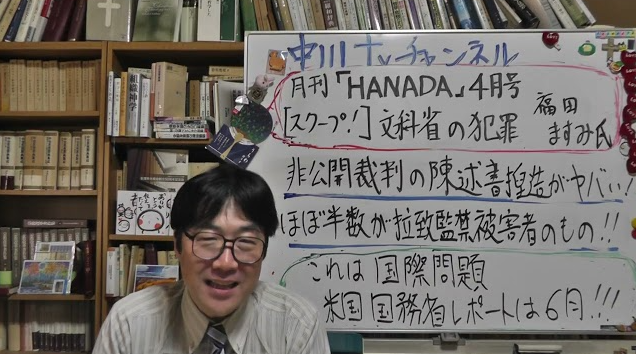 中川TVチャンネル
月刊「HANADA」4月号
[スクープ!] 文科省の犯罪
福田
ますみ氏
非公開裁判の陳述書捏造がヤバい!
ほぼ半数が拉致監禁被害者のもの!!
これは国際問題
米国国務省レポートは6月!!!
組織神学